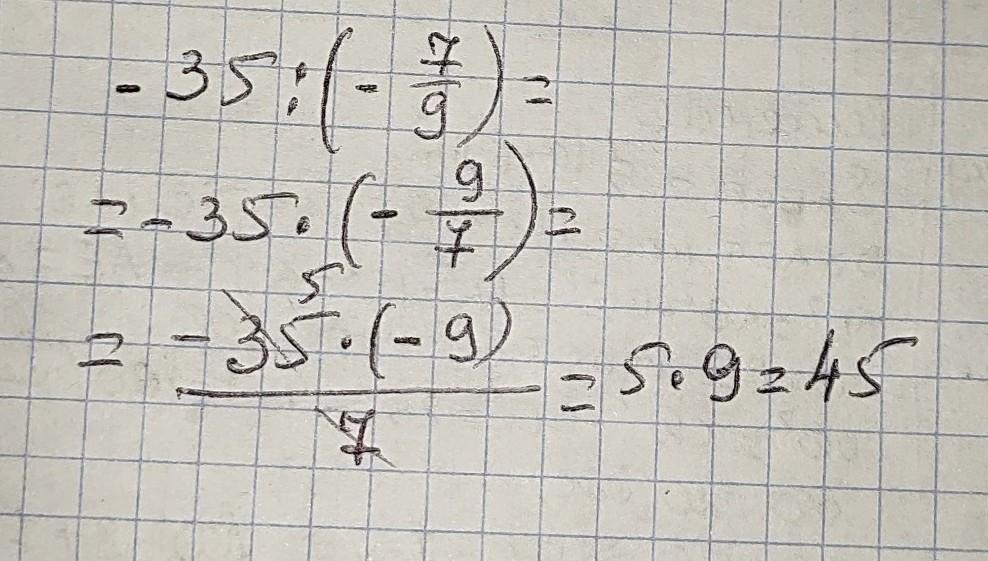 -35:(-7/9)=
=-35·(-9/7)=
=-35·(-9)/7=5·9=45
5